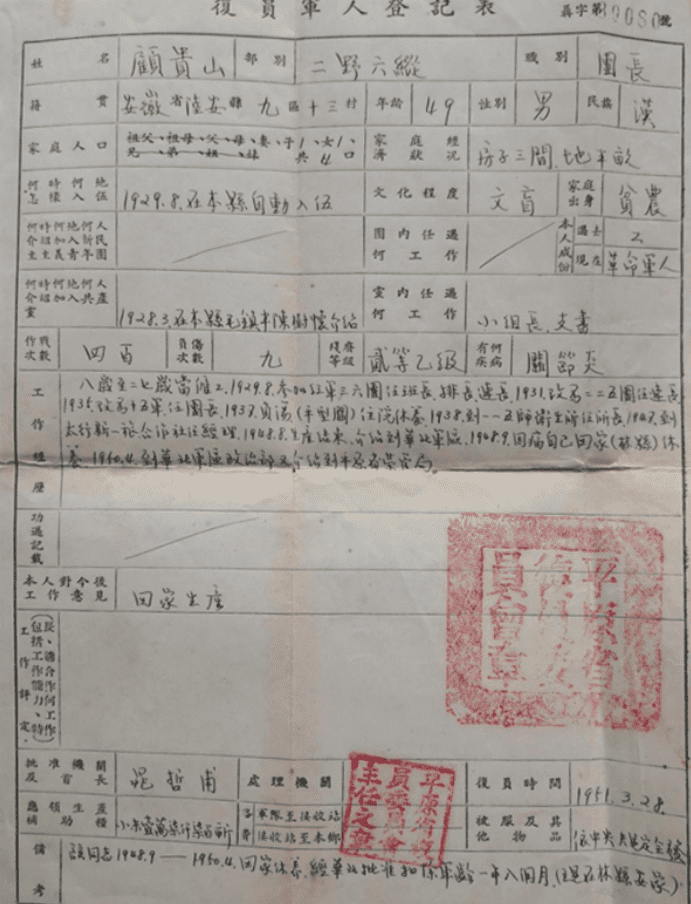 復員軍人登記表
字第 0080 號
姓名 顧貴山 部別 二野六縱 職別 團長
籍貫 安徽省陸安縣九區十三村 年齡 49 性別 男 民族 漢
家庭人口 祖父、祖母、父、母、妻、子1、女1、兄、弟、姐、妹 共4口 家庭經濟狀況 房子三間,地半畝
何時何地怎樣入伍 1929.8.在本縣自動入伍 文化程度 文盲 家庭出身 貧農
何時何地何人介紹加入新民主主義青年團 團內任過何工作 本人成份 過去 工 現在 革命軍人
何時何地何人介紹加入共產黨 1928.3.在本縣毛鎮 陳樹懷介紹 黨內任過何工作 小組長.支書
作戰次數 四百 負傷次數 九 殘廢等級 貳等乙級 有何疾病 關節炎
工作經歷
八歲至二七歲當僱工.1929.8.參加紅軍三六團任班長.排長.連長.1931.改為二二五團任連長
1935.改為十五軍任團長.1937.負傷(平型關)住院休養.1938.到一一五師衛生所任所長.1947.到
太行新一旅合作社任經理.1948.8.生產結束.介紹到華北軍區.1948.9.因病自己回家(林縣)休
養.1950.4.到華北軍區政治部又介紹到平原省榮管局.
功過記載
本人對今後工作意見 回家生產
工作評定 (包括工作能力、特長、適合作何工作)
平原省復員委員會章
批准機關及首長 晁哲甫 處理機關 復員時間 1951.3.28.
平原省復員委員會主任文章
應領生產補助糧 小米壹萬 市斤 路費 軍隊至接收站 接收站至本鄉 被服及其他物品 依中央 規定全發
備考 該同志1948.9——1950.4.回家休養.經華北批准扣除軍齡一年八個月.(現在林縣安家)